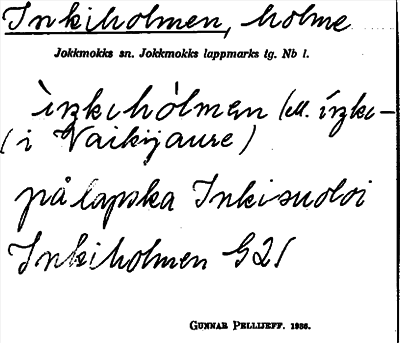 Inkiholmen, holme
Jokkmokks sn. Jokkmokks lappmarks tg. Nb l.
ìŋkihólmen (ell. íŋki-
(i Vaikijaure)
på lapska Inkisuoloi
Inkiholmen G21
GUNNAR PELLIJEFF. 1956.